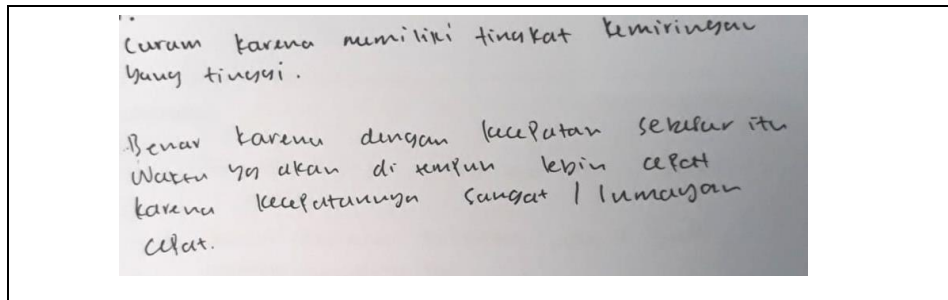 Curam karena memiliki tingkat kemiringan
yang tinggi.
Benar karena dengan kecepatan sebesar itu
Waktu yg akan di tempuh lebih cepat
karena kecepatannya sangat / lumayan
cepat.